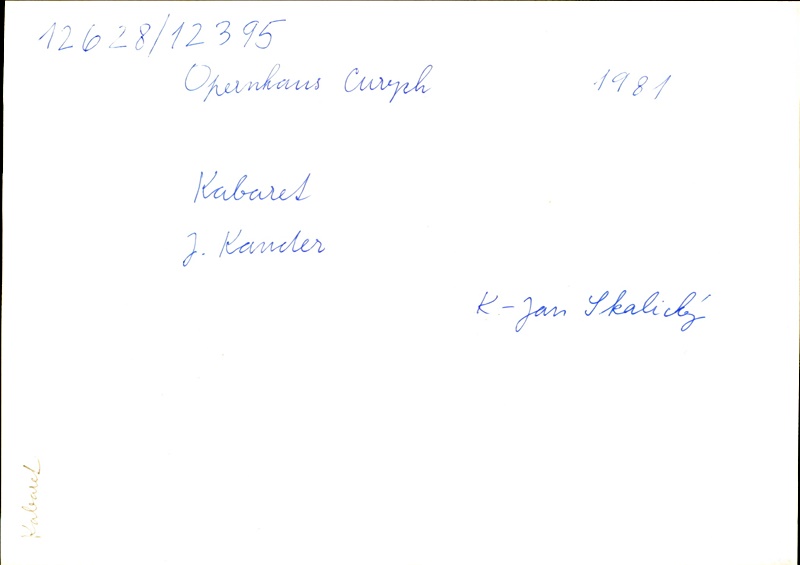 12628/12395
Opernhaus Curych 1981
Kabaret
J. Kander
K-Jan Skalický
Kabaret